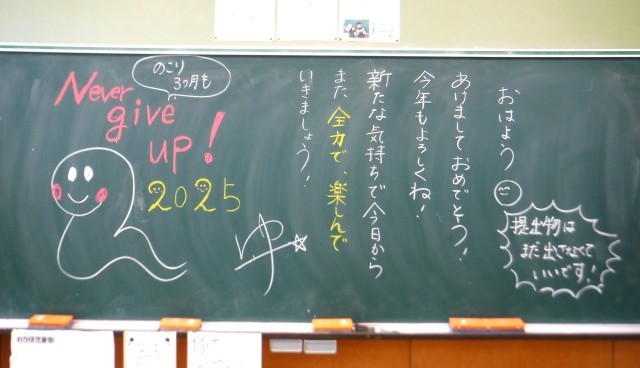 おはよう
あけましておめでとう!
今年もよろしくね!
新たな気持ちで今日から
また、全力で、楽しんで
いきましょう!
提出物は
まだ出さなくて
いいです!
のこり
3ヶ月も
Never
give
up!
2025
ゆ